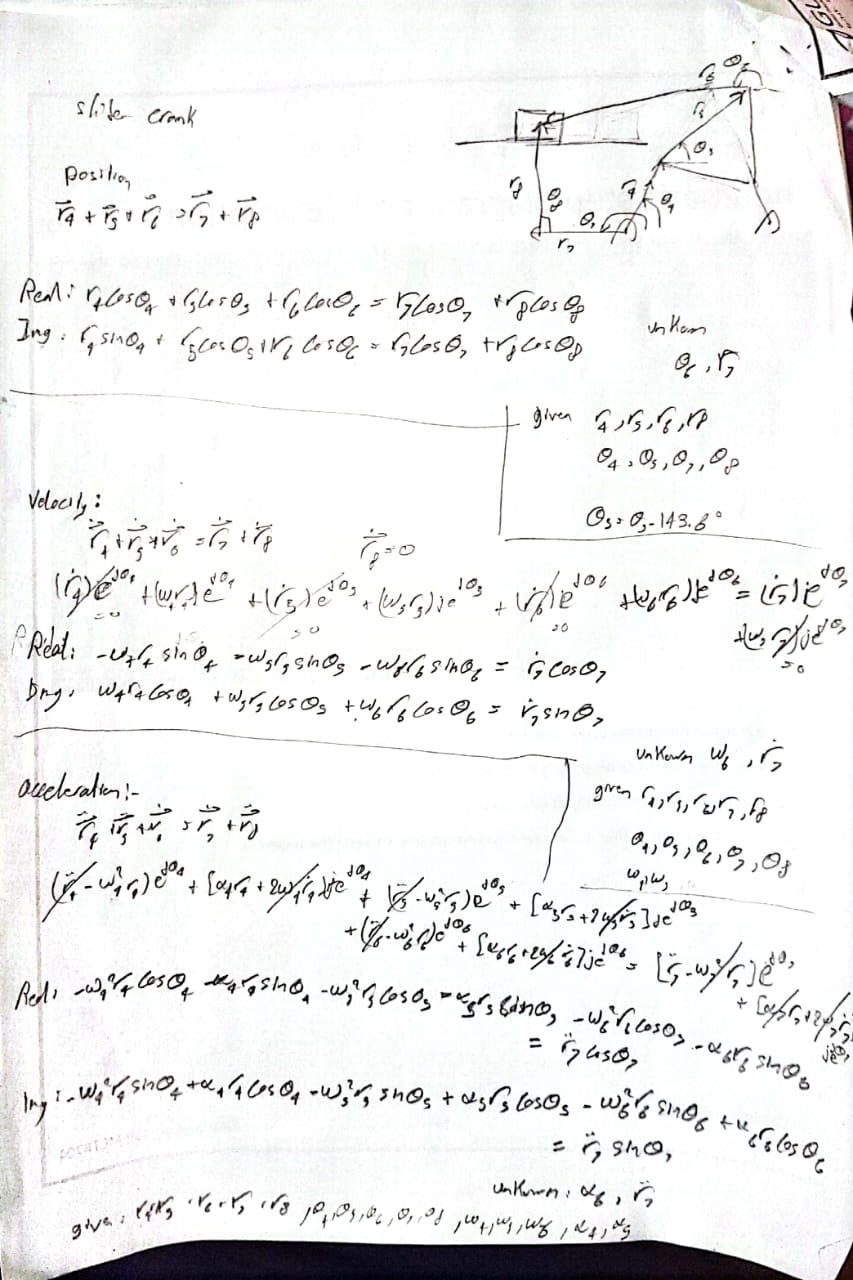 slider crank
position
r⃗₄ + r⃗₅ + r⃗₆ = r⃗₇ + r⃗₈
Real: r₄cosθ₄ + r₅cosθ₅ + r₆cosθ₆ = r₇cosθ₇ + r₈cosθ₈
Img: r₄sinθ₄ + r₅cosθ₅ + r₆cosθ₆ = r₇cosθ₇ + r₈cosθ₈
unkown
θ₆, r₇
given r₄, r₅, r₆, r₈
θ₄, θ₅, θ₇, θ₈
θ₅ = θ₃ - 143.6°
Velocity:
ṙ₄ + ṙ₅ + ṙ₆ = ṙ₇ + ṙ₈
ṙ₈ = 0
(ṙ₄)e^jθ₄ + (ω₄r₄)e^jθ₄ + (ṙ₅)e^jθ₅ + (ω₅r₅)je^jθ₅ + (ṙ₆)e^jθ₆ + (ω₆r₆)je^jθ₆ = (ṙ₇)e^jθ₇
= 0 = 0 = 0 = 0
Real: -ω₄r₄ sinθ₄ - ω₅r₅ sinθ₅ - ω₆r₆ sinθ₆ = ṙ₇ cosθ₇
Img: ω₄r₄cosθ₄ + ω₅r₅cosθ₅ + ω₆r₆cosθ₆ = ṙ₇sinθ₇
unkown ω₆, ṙ₇
acceleration:-
given
r̈₄ + r̈₅ + r̈₆ = r̈₇ + r̈₈
θ₄, θ₅, θ₆, θ₇, θ₈
(r̈₄ - ω₄²r₄)e^jθ₄ + [α₄r₄ + 2ω₄ṙ₄]je^jθ₄ + (r̈₅ - ω₅²r₅)e^jθ₅ + [α₅r₅ + 2ω₅ṙ₅]je^jθ₅
+ (r̈₆ - ω₆²r₆)e^jθ₆ + [α₆r₆ + 2ω₆ṙ₆]je^jθ₆ = [r̈₇ - ω₇²r₇]e^jθ₇
Real: -ω₄²r₄cosθ₄ - α₄r₄sinθ₄ - ω₅²r₅cosθ₅ - α₅r₅sinθ₅ - ω₆²r₆cosθ₇ - α₆r₆sinθ₆
= r̈₇cosθ₇
Img: -ω₄²r₄sinθ₄ + α₄r₄cosθ₄ - ω₅²r₅sinθ₅ + α₅r₅cosθ₅ - ω₆²r₆sinθ₆ + α₆r₆cosθ₆
= r̈₇sinθ₇
unknown: α₆, r̈₇
given: